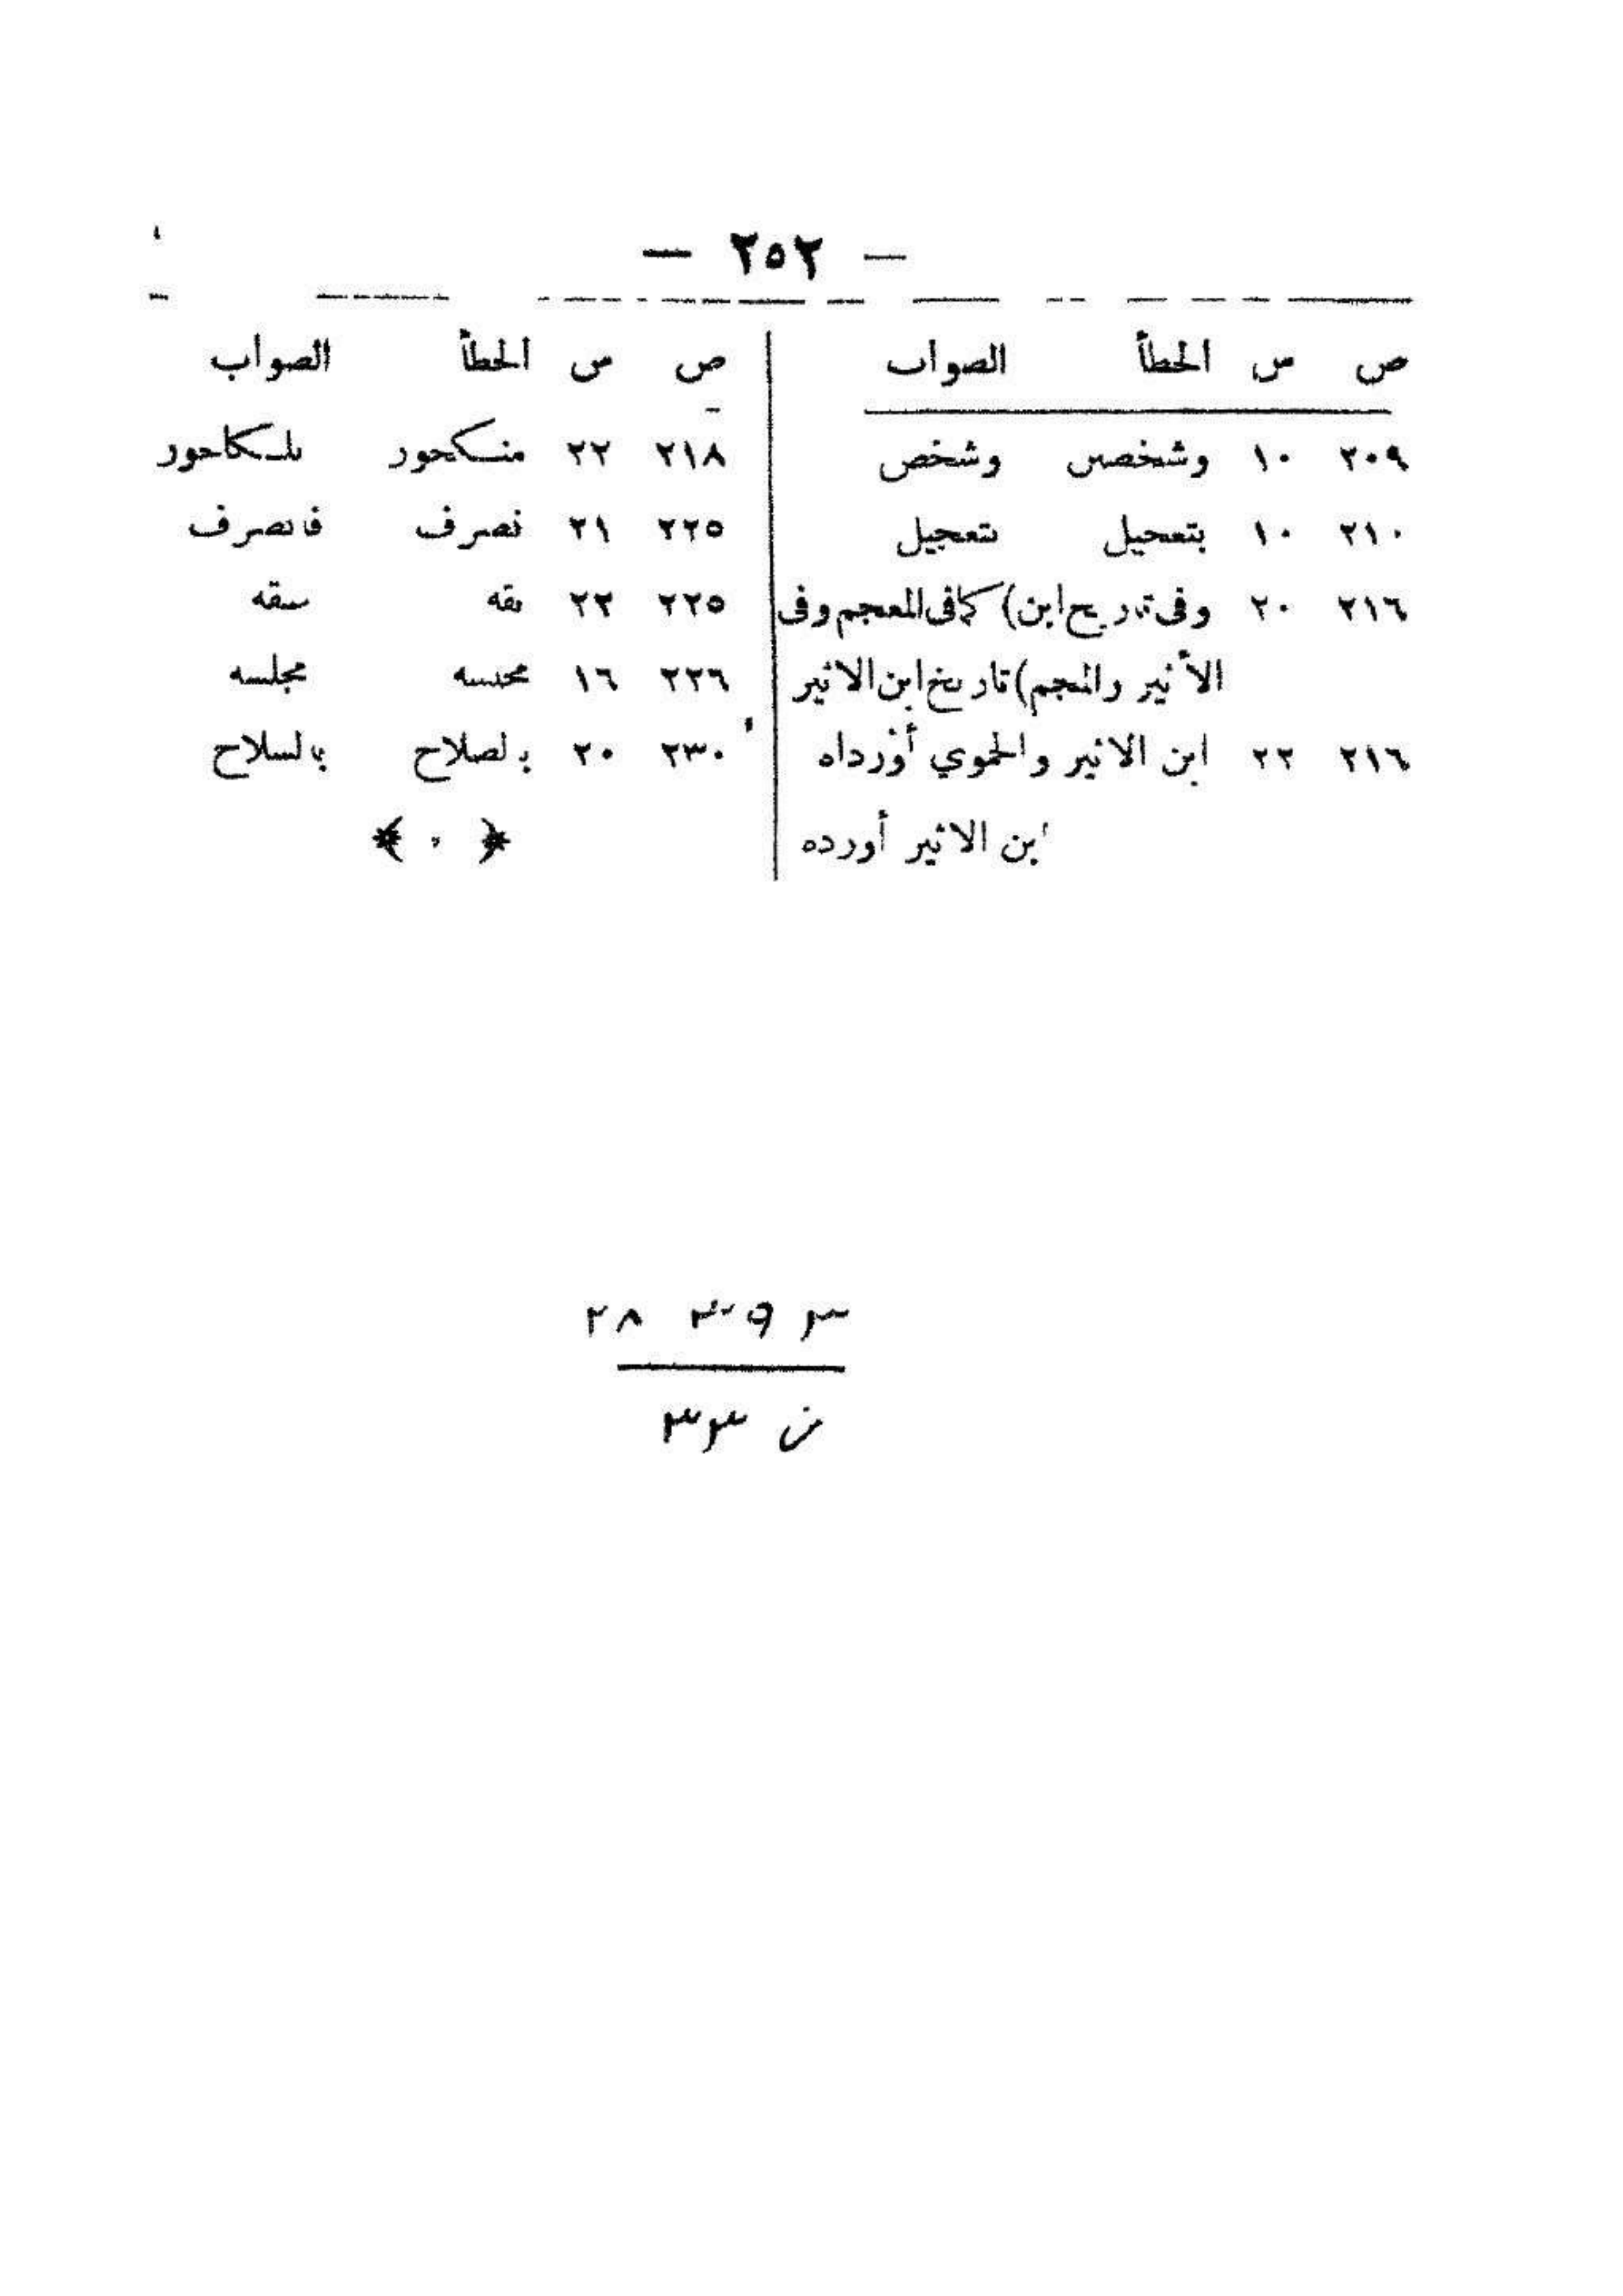 — ٢٥٢ —
ص س الخطأ الصواب
٢٠٩ ١٠ وشخصين وشخص
٢١٠ ١٠ بتعحيل بتعجيل
٢١٦ ٢٠ وفى تاريخ ابن) كما فى المعجم وفى
الأثير والمعجم) تاريخ ابن الاثير
٢١٦ ٢٢ ابن الاثير والحموي أورداه
ابن الاثير أورده
ص س الخطأ الصواب
٢١٨ ٢٢ منكحور
٢٢٥ ٢١ نصرف فانصرف
٢٢٥ ٢٢
٢٢٦ ١٦ مجلسه
٢٣٠ ٢٠ بالصلاح بالسلاح
٢٨
ن ٣٣